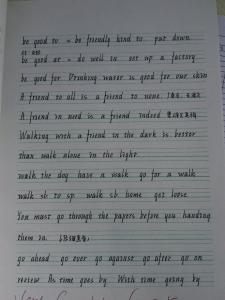 be good to = be friendly kind to put down
be good at = do well in set up a factory
be good for Drinking water is good for our skin
A friend to all is a friend to none
A friend in need is a friend indeed
Walking with a friend in the dark is better
than walk alone in the light
walk the dog have a walk go for a walk
walk sb to sp walk sb home get loose
You must go through the papers before you handing
them in.
go ahead go over go against go after go on
review As time goes by With time going by